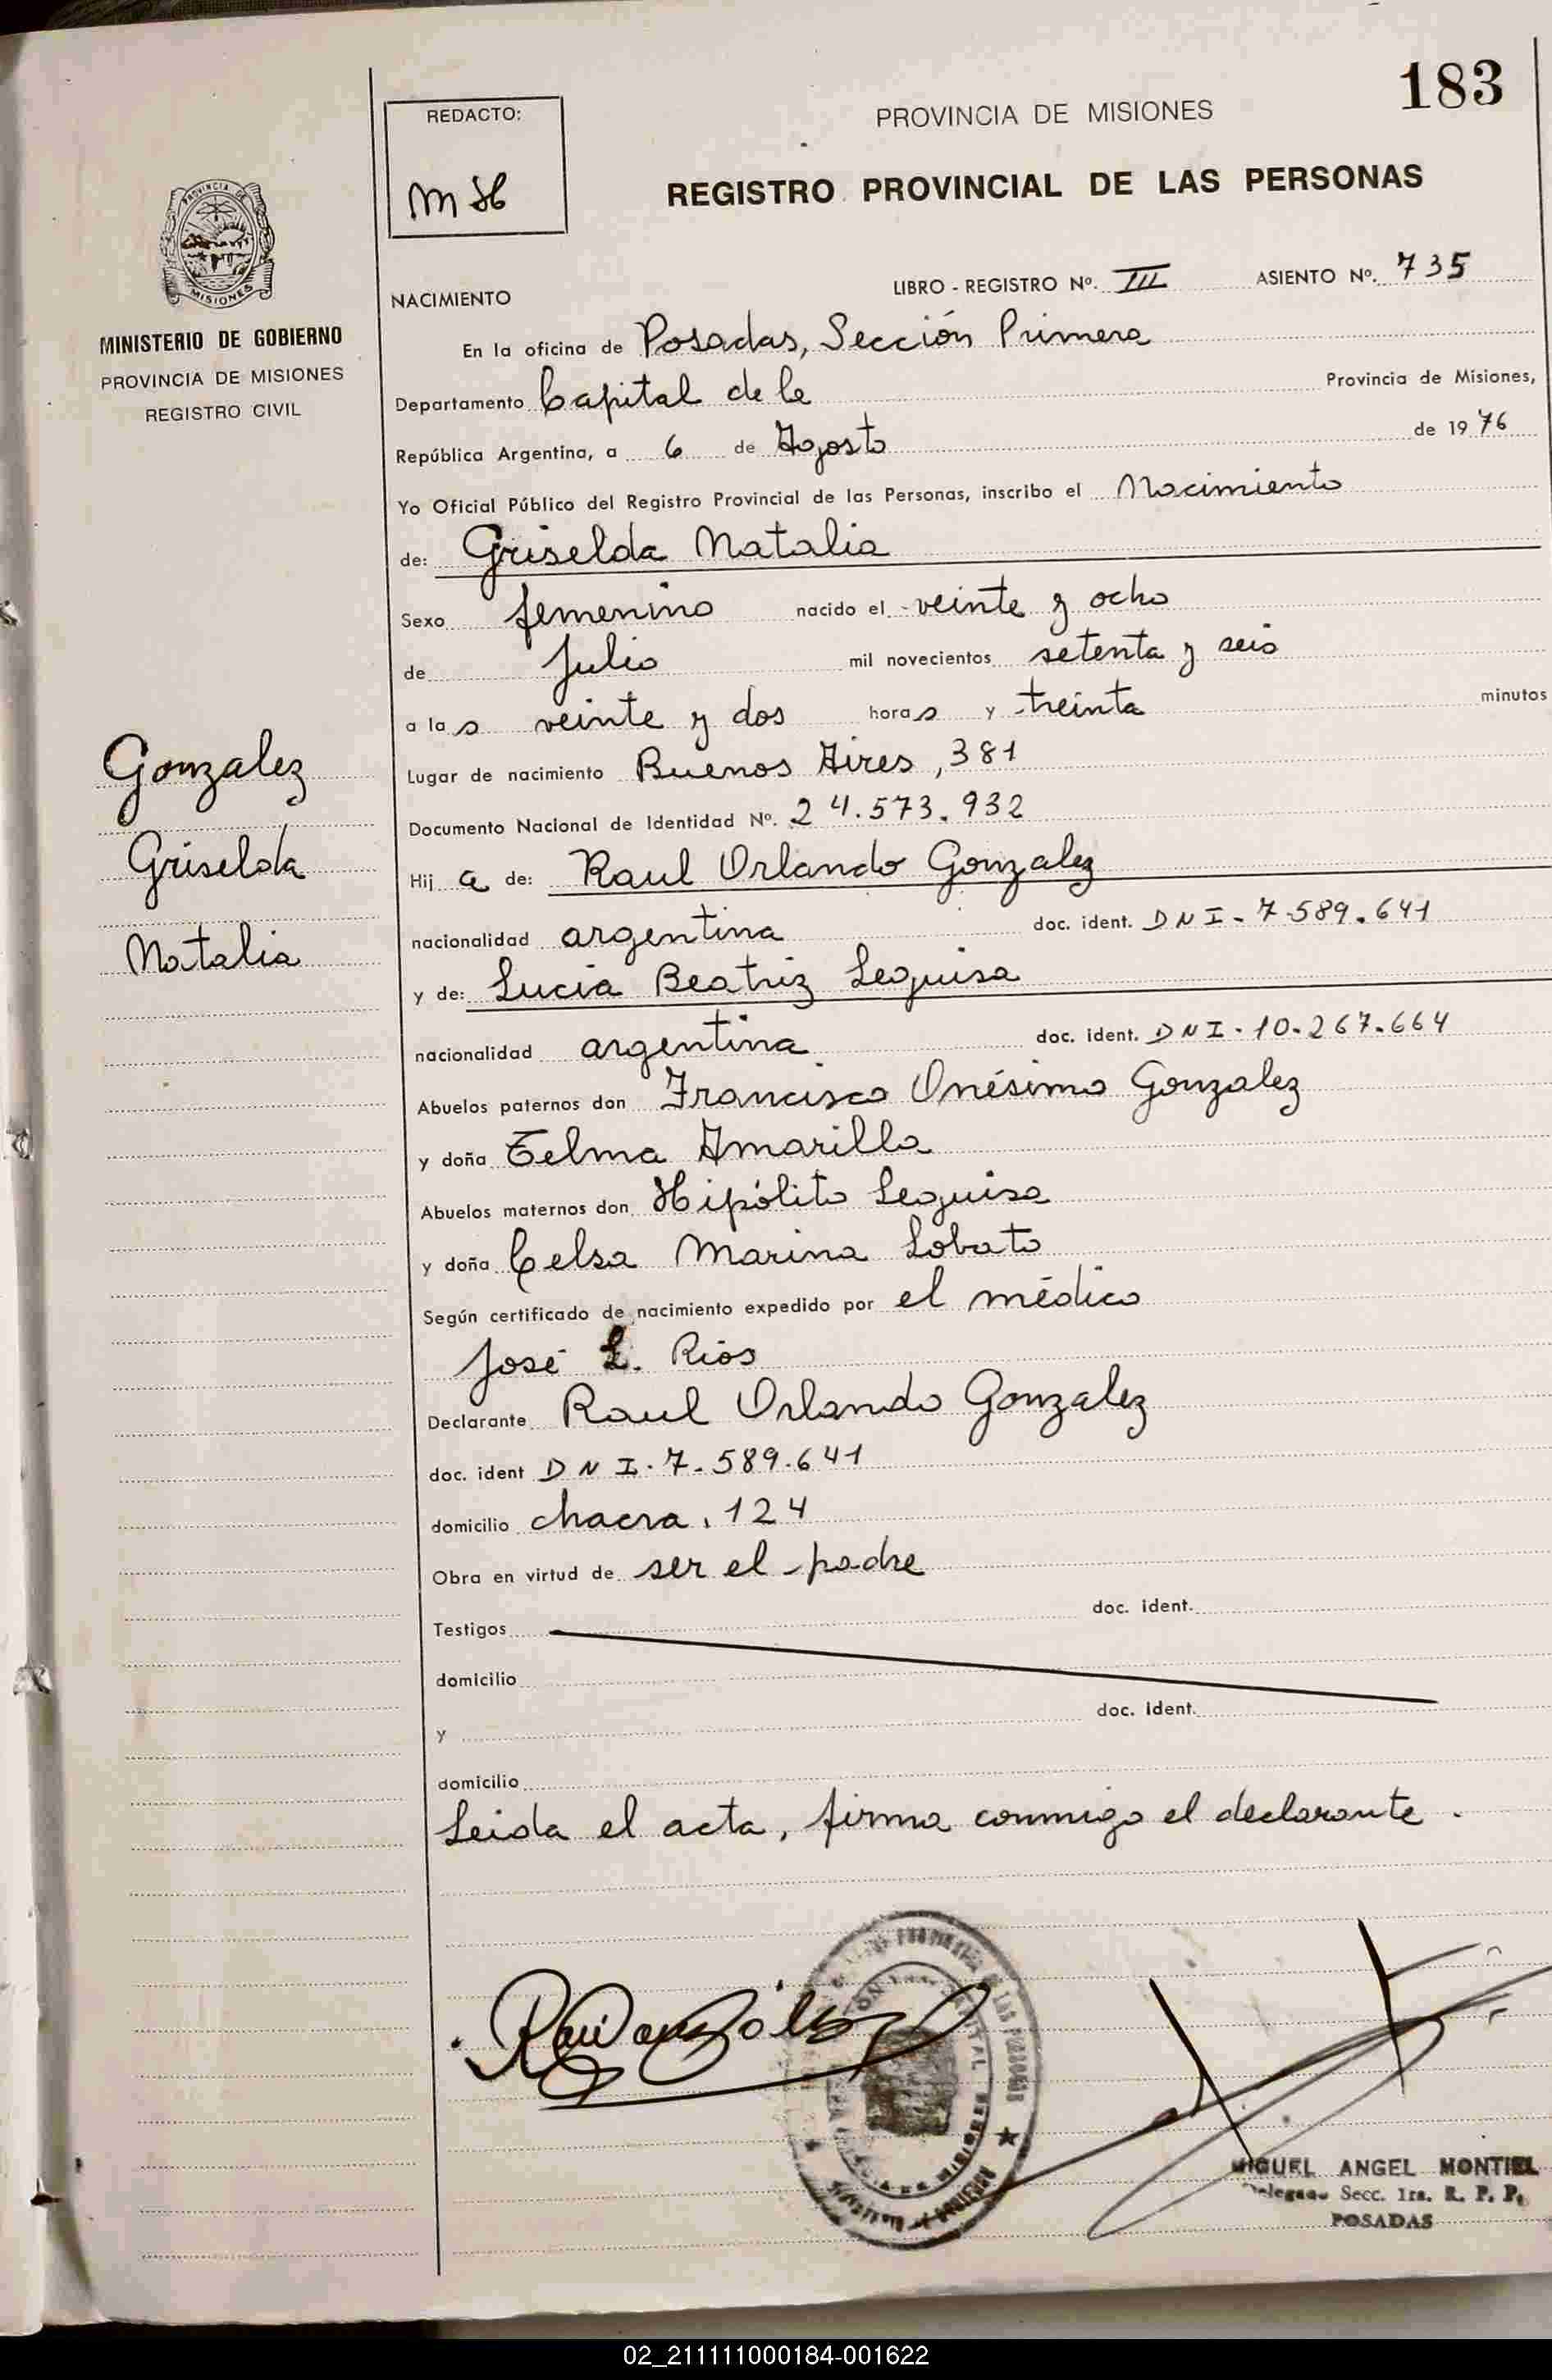 183
REDACTO:
PROVINCIA DE MISIONES
MH
REGISTRO PROVINCIAL DE LAS PERSONAS
PROVINCIA DE
MISIONES
MINISTERIO DE GOBIERNO
PROVINCIA DE MISIONES
REGISTRO CIVIL
NACIMIENTO
LIBRO - REGISTRO Nº. III ASIENTO Nº. 735
En la oficina de Posadas, Sección Primera
Departamento Capital de la Provincia de Misiones,
República Argentina, a 6 de Agosto de 1976
Yo Oficial Público del Registro Provincial de las Personas, inscribo el Nacimiento
de: Griselda Natalia
Sexo femenino nacido el veinte y ocho
de Julio mil novecientos setenta y seis
a las veinte y dos horas y treinta minutos
Lugar de nacimiento Buenos Aires, 381
Documento Nacional de Identidad Nº. 24.573.932
Hija de: Raul Orlando Gonzalez
nacionalidad argentina doc. ident. DNI-7.589.641
y de: Lucia Beatriz Leguisa
nacionalidad argentina doc. ident. DNI-10.267.664
Abuelos paternos don Francisco Onésimo Gonzalez
y doña Telma Amarilla
Abuelos maternos don Hipólito Leguisa
y doña Celsa Marina Lobato
Según certificado de nacimiento expedido por el médico
José L. Rios
Declarante Raul Orlando Gonzalez
doc. ident DNI.7.589.641
domicilio chacra. 124
Obra en virtud de ser el padre
Testigos doc. ident.
domicilio
y doc. ident.
domicilio
Leida el acta, firma conmigo el declarante.
Gonzalez
Griselda
Natalia
MIGUEL ANGEL MONTIEL
Delegado Secc. 1ra. R. P. P.
POSADAS
02_211111000184-001622